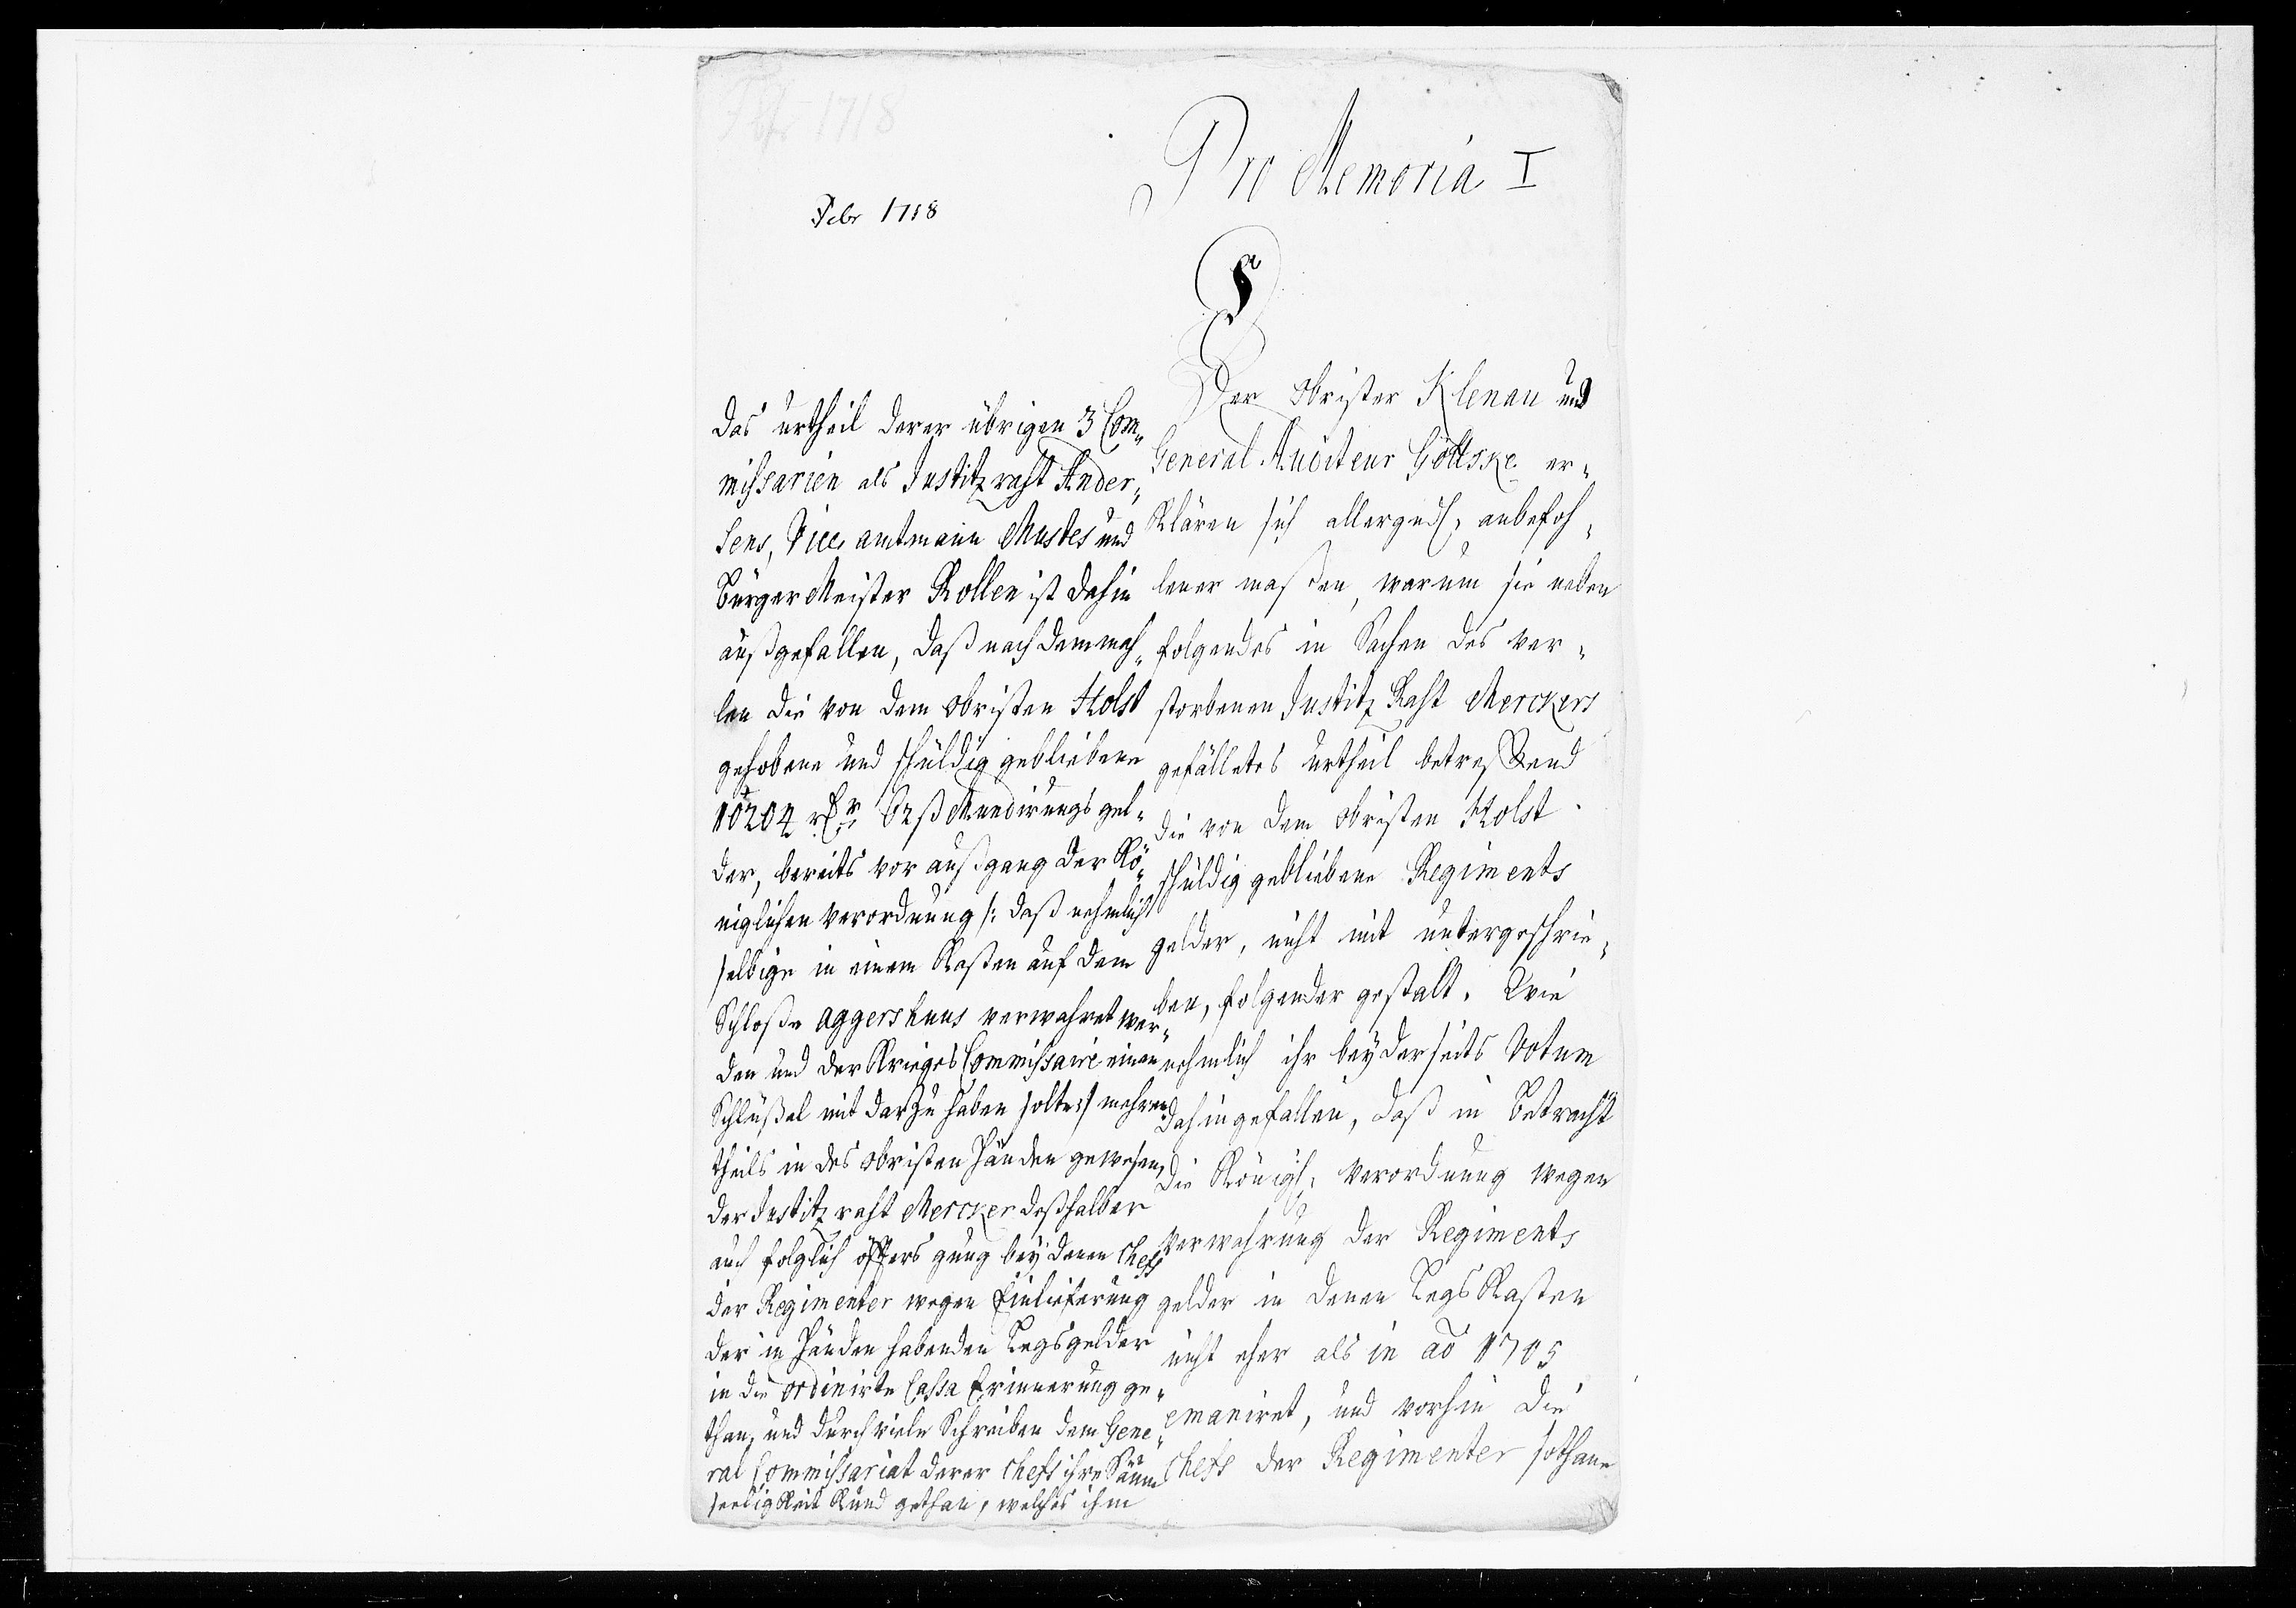 Febr 1718
Febr 1718
Pro Memoria I
Der Obrister Klenau und
General Auditeur Göttske er-
klären sich allergndst. anbefoh-
lener maßen, warum sie neben
folgendes in Sachen des ver-
storbenen Justitz Raht Merckers
gefälletes urtheil betreffend
die von dem Obristen Holst
schuldig gebliebene Regiments
gelder, nicht mit untergeschrie-
ben, folgender gestalt. Wie
nehmlich ihr beyderseits Votum
dahingefallen, daß in betracht
die Königl. Verordnung wegen
verwahrung der Regiments
gelder in denen Legs Kasten
nicht eher als in ao 1705
emaniret, und vorhin die
Chefs der Regimenter sothane
Das urtheil derer übrigen 3 Com-
missarien als Justitz raht Ander-
sens, Vice amtmann Mustes und
Bürger Meister Rollen ist dahin
außgefallen, daß nach dem mah-
len die von dem Obristen Holst
gehobene und schuldig gebliebene
10204 rthr 82ß Mundirungs gel-
der, bereits vor außgang der Kö-
niglichen verordnung /: daß nehmlich
selbige in einem Kasten auf dem
Schloße Aggershuus verwahret wer-
den und der Krieges Commissaire einen
Schlüßel mit darzu haben solte :/ mehren
theils in des Obristen Händen gewesen,
der Justitz raht Mercker deßhalber
auch folglich öffters gnug bey denen Chefs
der Regimenter wegen Einlieferung
der in Händen habenden Legsgelder
in die ordinirte Cassa Erinnerung ge-
than, und durch viele Schreiben dem Gene-
ral Commissariat derer Chefs ihre Säum
seeligkeit Kund gethan, welches ihm